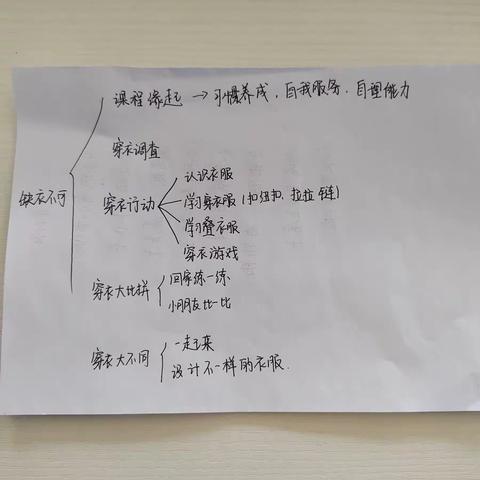 课程缘起 → 习惯养成，自我服务，自理能力
穿衣调查
缺衣不可
穿衣行动
认识衣服
学习穿衣服（扣纽扣、拉拉链）
学习叠衣服
穿衣游戏
穿衣大比拼
回家练一练
小朋友比一比
穿衣大不同
一起来
设计不一样的衣服.